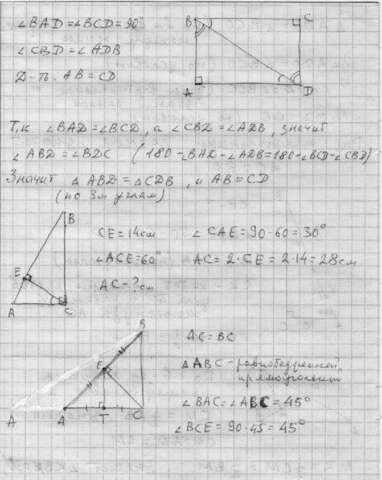 ∠BAD = ∠BCD = 90°
∠CBD = ∠ADB
Д-ть. AB = CD
B
C
A
D
Т.к ∠BAD = ∠BCD, а ∠CBD = ∠ADB, значит
∠ABD = ∠BDC (180 - ∠BAD - ∠ADB = 180 - ∠BCD - ∠CBD)
Значит △ABD = △CDB, и AB = CD
(по 3м углам)
B
E
A
C
CE = 14см
∠ACE = 60°
AC - ? см
∠CAE = 90 - 60 = 30°
AC = 2 · CE = 2 · 14 = 28см
B
F
A
A
T
C
AC = BC
△ABC - равнобедренный,
прямоугольный
∠BAC = ∠ABC = 45°
∠BCE = 90 - 45 = 45°